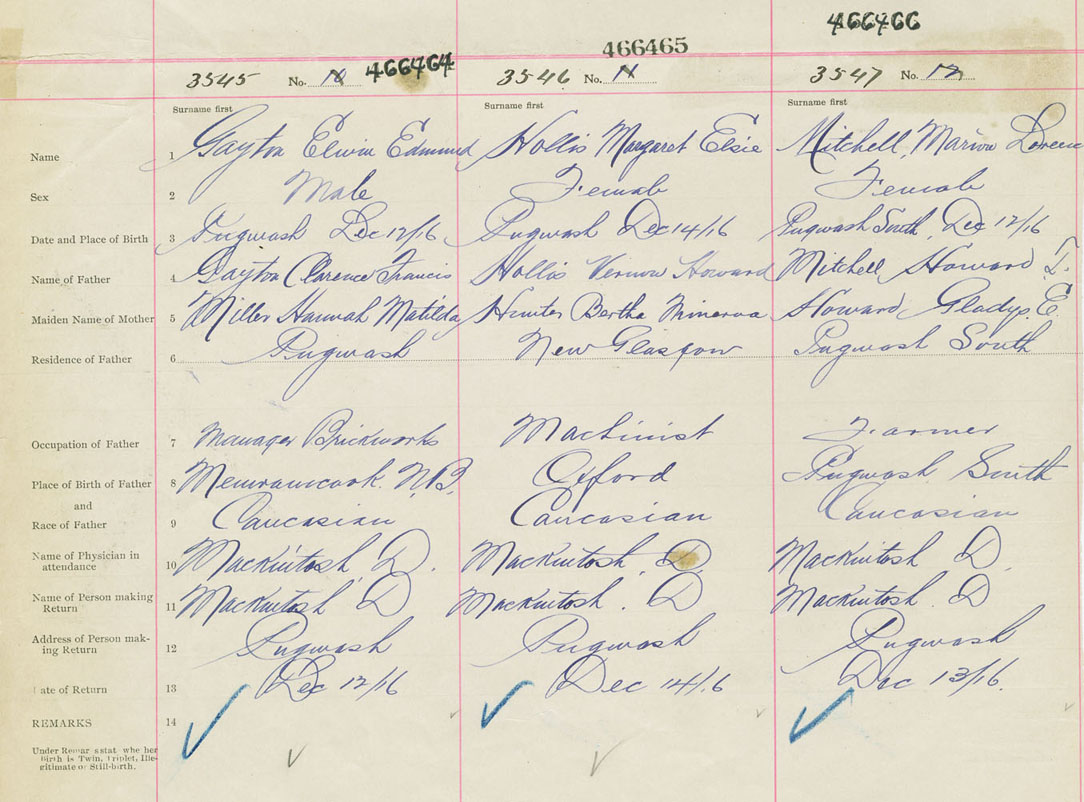 466466
466465
466464
3545 No. 10
3546 No. 11
3547 No. 12
Surname first
Surname first
Surname first
Name 1 Gayton Elwin Edmund Hollis Margaret Elsie Mitchell, Marion Doreen
Sex 2 Male Female Female
Date and Place of Birth 3 Pugwash Dec 12/16 Pugwash Dec 14/16 Pugwash South, Dec 12/16
Name of Father 4 Gayton Clarence Francis Hollis Vernon Howard Mitchell Howard
Maiden Name of Mother 5 Miller Hannah Matilda Hunter Bertha Minerva Howard Gladys E.
Residence of Father 6 Pugwash New Glasgow Pugwash South
Occupation of Father 7 Manager Brickworks Machinist Farmer
Place of Birth of Father 8 Memramcook. N.B. Oxford Pugwash South
and
Race of Father 9 Caucasian Caucasian Caucasian
Name of Physician in
attendance 10 Mackintosh, D. Mackintosh, D Mackintosh D.
Name of Person making
Return 11 Mackintosh D Mackintosh. D Mackintosh. D
Address of Person mak-
ing Return 12 Pugwash Pugwash Pugwash
ate of Return 13 Dec 12/16 Dec 14/16 Dec 13/16.
REMARKS 14
Under Remar s stat whe her
Birth is Twin, Triplet, Ille-
gitimate or Still-birth.